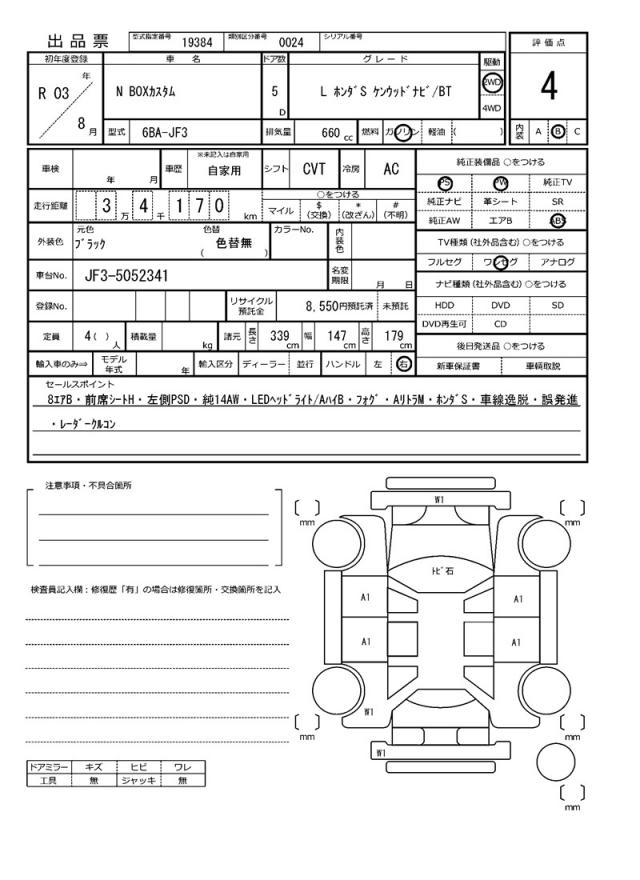 出 品 票
型式指定番号 19384 類別区分番号 0024 シリアル番号
評 価 点
初年度登録 車 名 ドア数 グ レ ー ド 駆動
R 03 年 8 月
N BOXカスタム 5 D L ホンダS ケンウッドナビ/BT 2WD 4WD
4
型式 6BA-JF3 排気量 660 cc 燃料 ガソリン 軽油 ( )
内装 A B C
車検 年 月 車歴 ※未記入は自家用 自家用 シフト CVT 冷房 AC
純正装備品 ○をつける
PS PW 純正TV
走行距離 3 万 4 千 1 7 0 km
○をつける
マイル $ (交換) * (改ざん) # (不明)
純正ナビ 革シート SR
純正AW エアB ABS
外装色 元色 ブラック 色替 色替無 ( ) カラーNo. 内装色
TV種類 (社外品含む) ○をつける
フルセグ ワンセグ アナログ
車台No. JF3-5052341 名変期限 月 日
ナビ種類 (社外品含む) ○をつける
登録No. リサイクル預託金 8,550円預託済 未預託
HDD DVD SD
DVD再生可 CD
定員 4 ( ) 人 積載量 kg 諸元 長さ 339 cm 幅 147 cm 高さ 179 cm
後日発送品 ○をつける
輸入車のみ⇒ モデル年式 年 輸入区分 ディーラー 並行 ハンドル 左 右
新車保証書 車輌取説
セールスポイント
8エアB・前席シートH・左側PSD・純14AW・LEDヘッドライト/AハイB・フォグ・AリトラM・ホンダS・車線逸脱・誤発進
・レーダークルコン
注意事項・不具合箇所
検査員記入欄：修復歴「有」の場合は修復箇所・交換箇所を記入
W1
mm
mm
トビ石
A1
A1
A1
A1
W1
mm
mm
W1
mm
ドアミラー キズ ヒビ ワレ
工具 無 ジャッキ 無